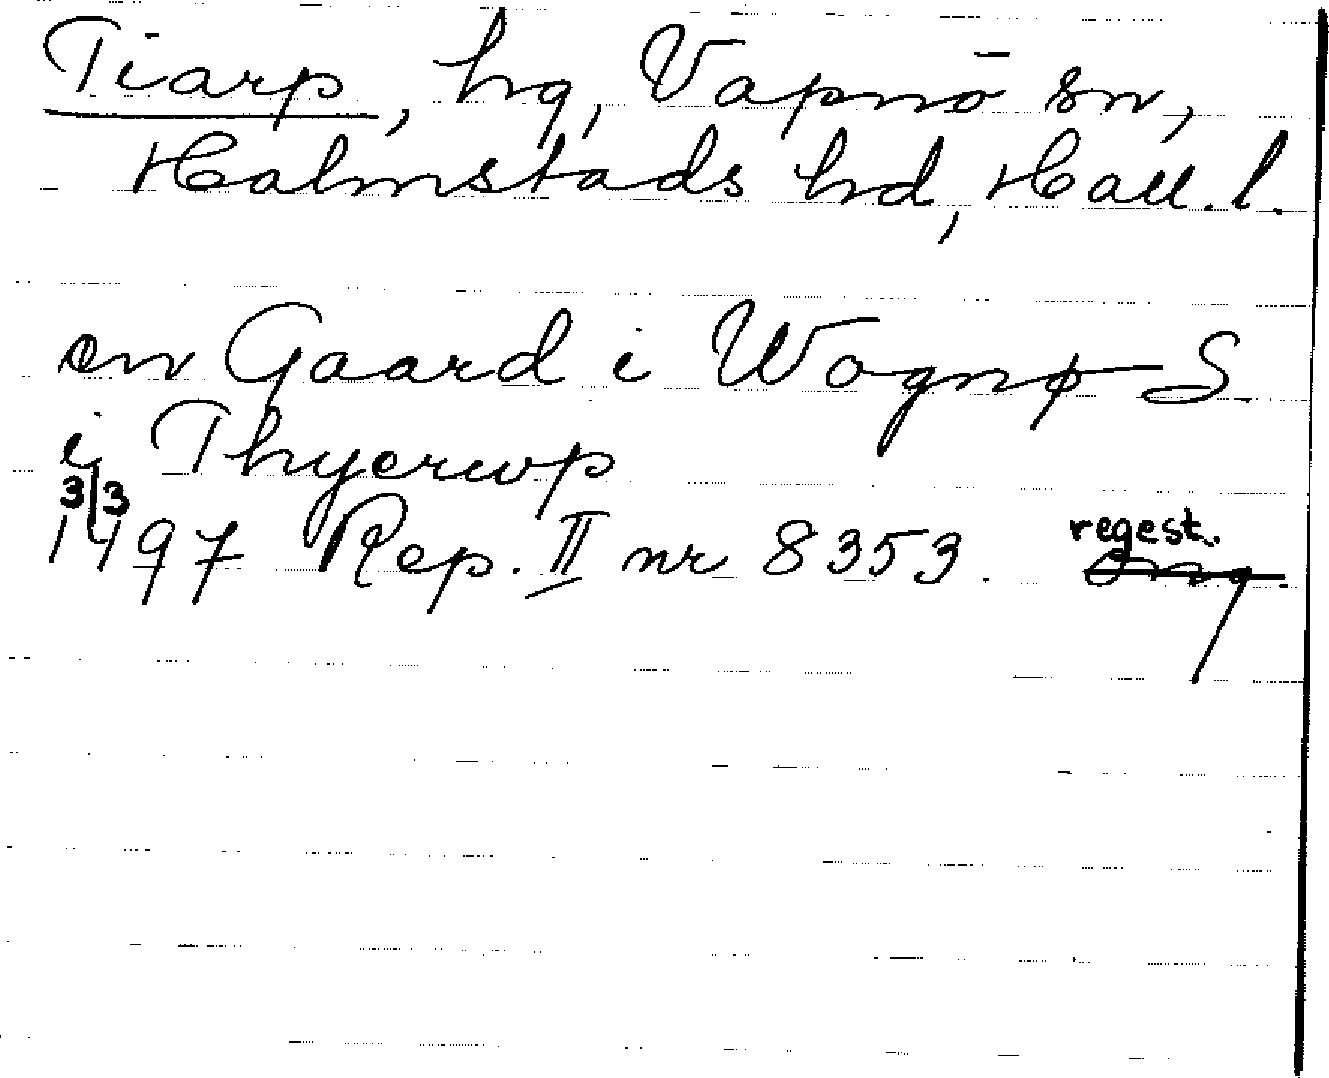 Tiarp, hg, Vapnö sn,
Halmstads hd, Hall. l.
en Gaard i Wognø S
i Thyerup
3/3
1497 Rep. II nr 8353. regest.